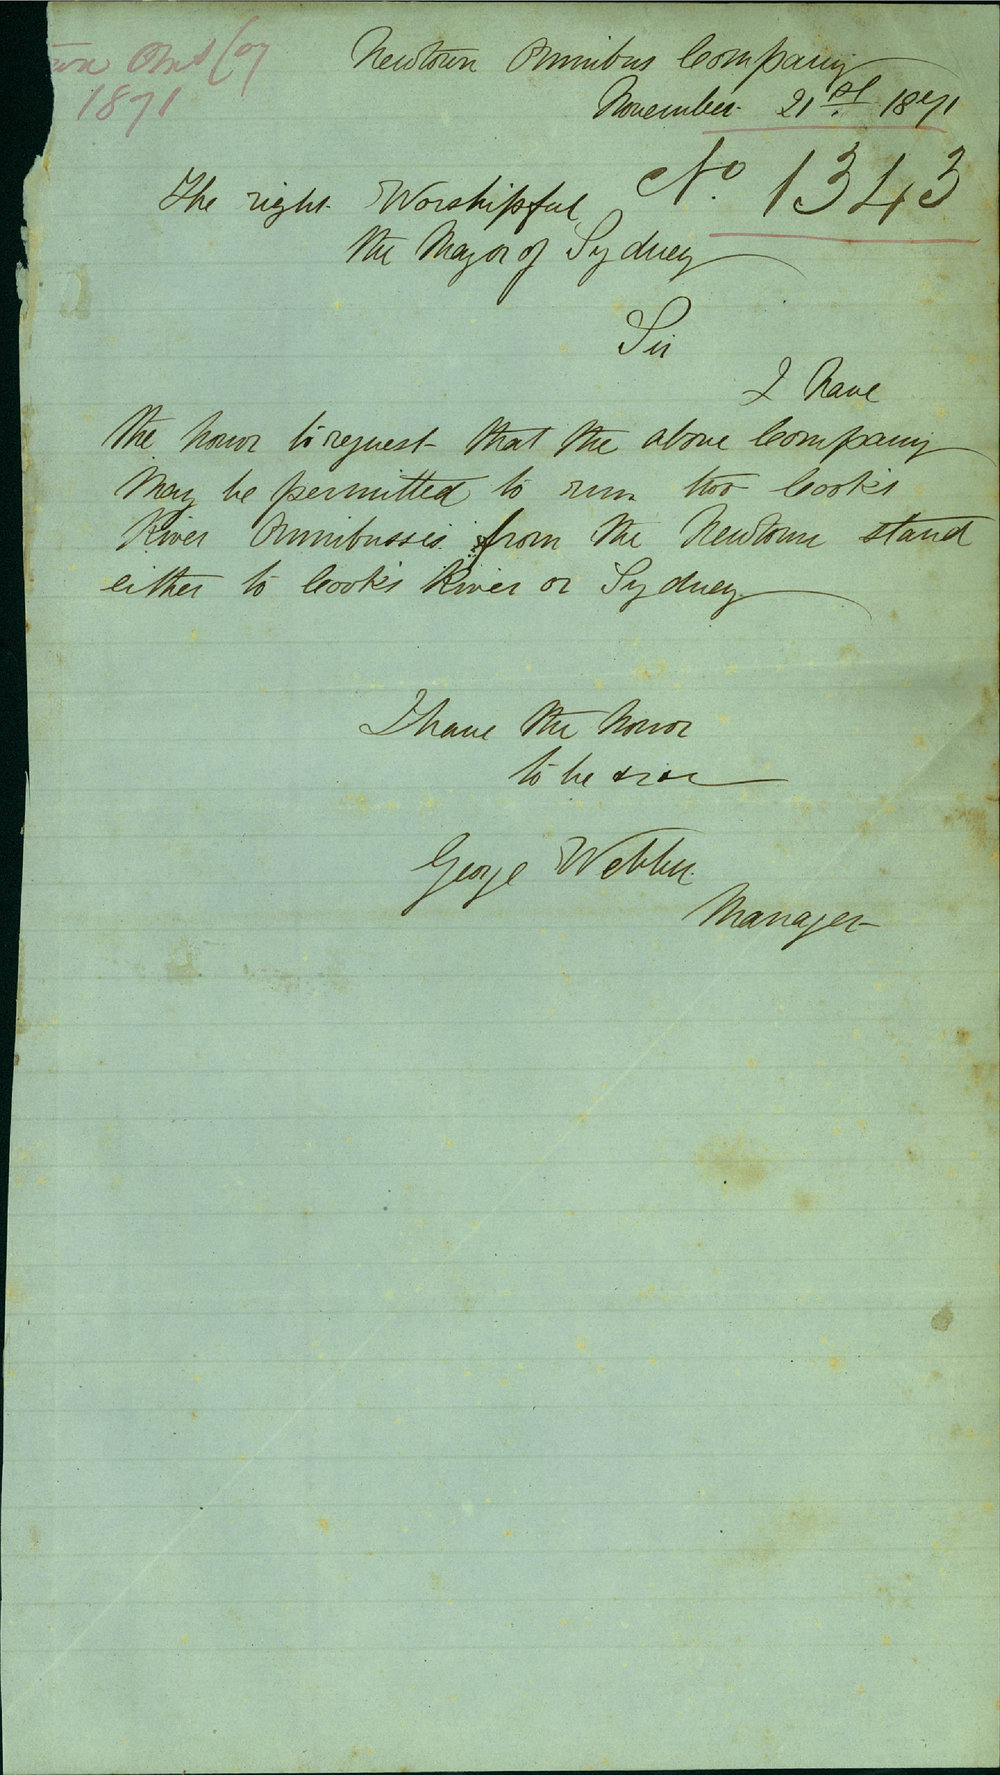 Omb Coy
1871
Newtown Omnibus Company
November 21st 1871
No 1343
The right Worshipful
the Mayor of Sydney
Sir
I have
the honor to request that the above Company
May be permitted to run two Cooks
River Omnibusses from the Newtown stand
either to Cooks River or Sydney
I have the honor
to be &c &c
George Webber
Manager